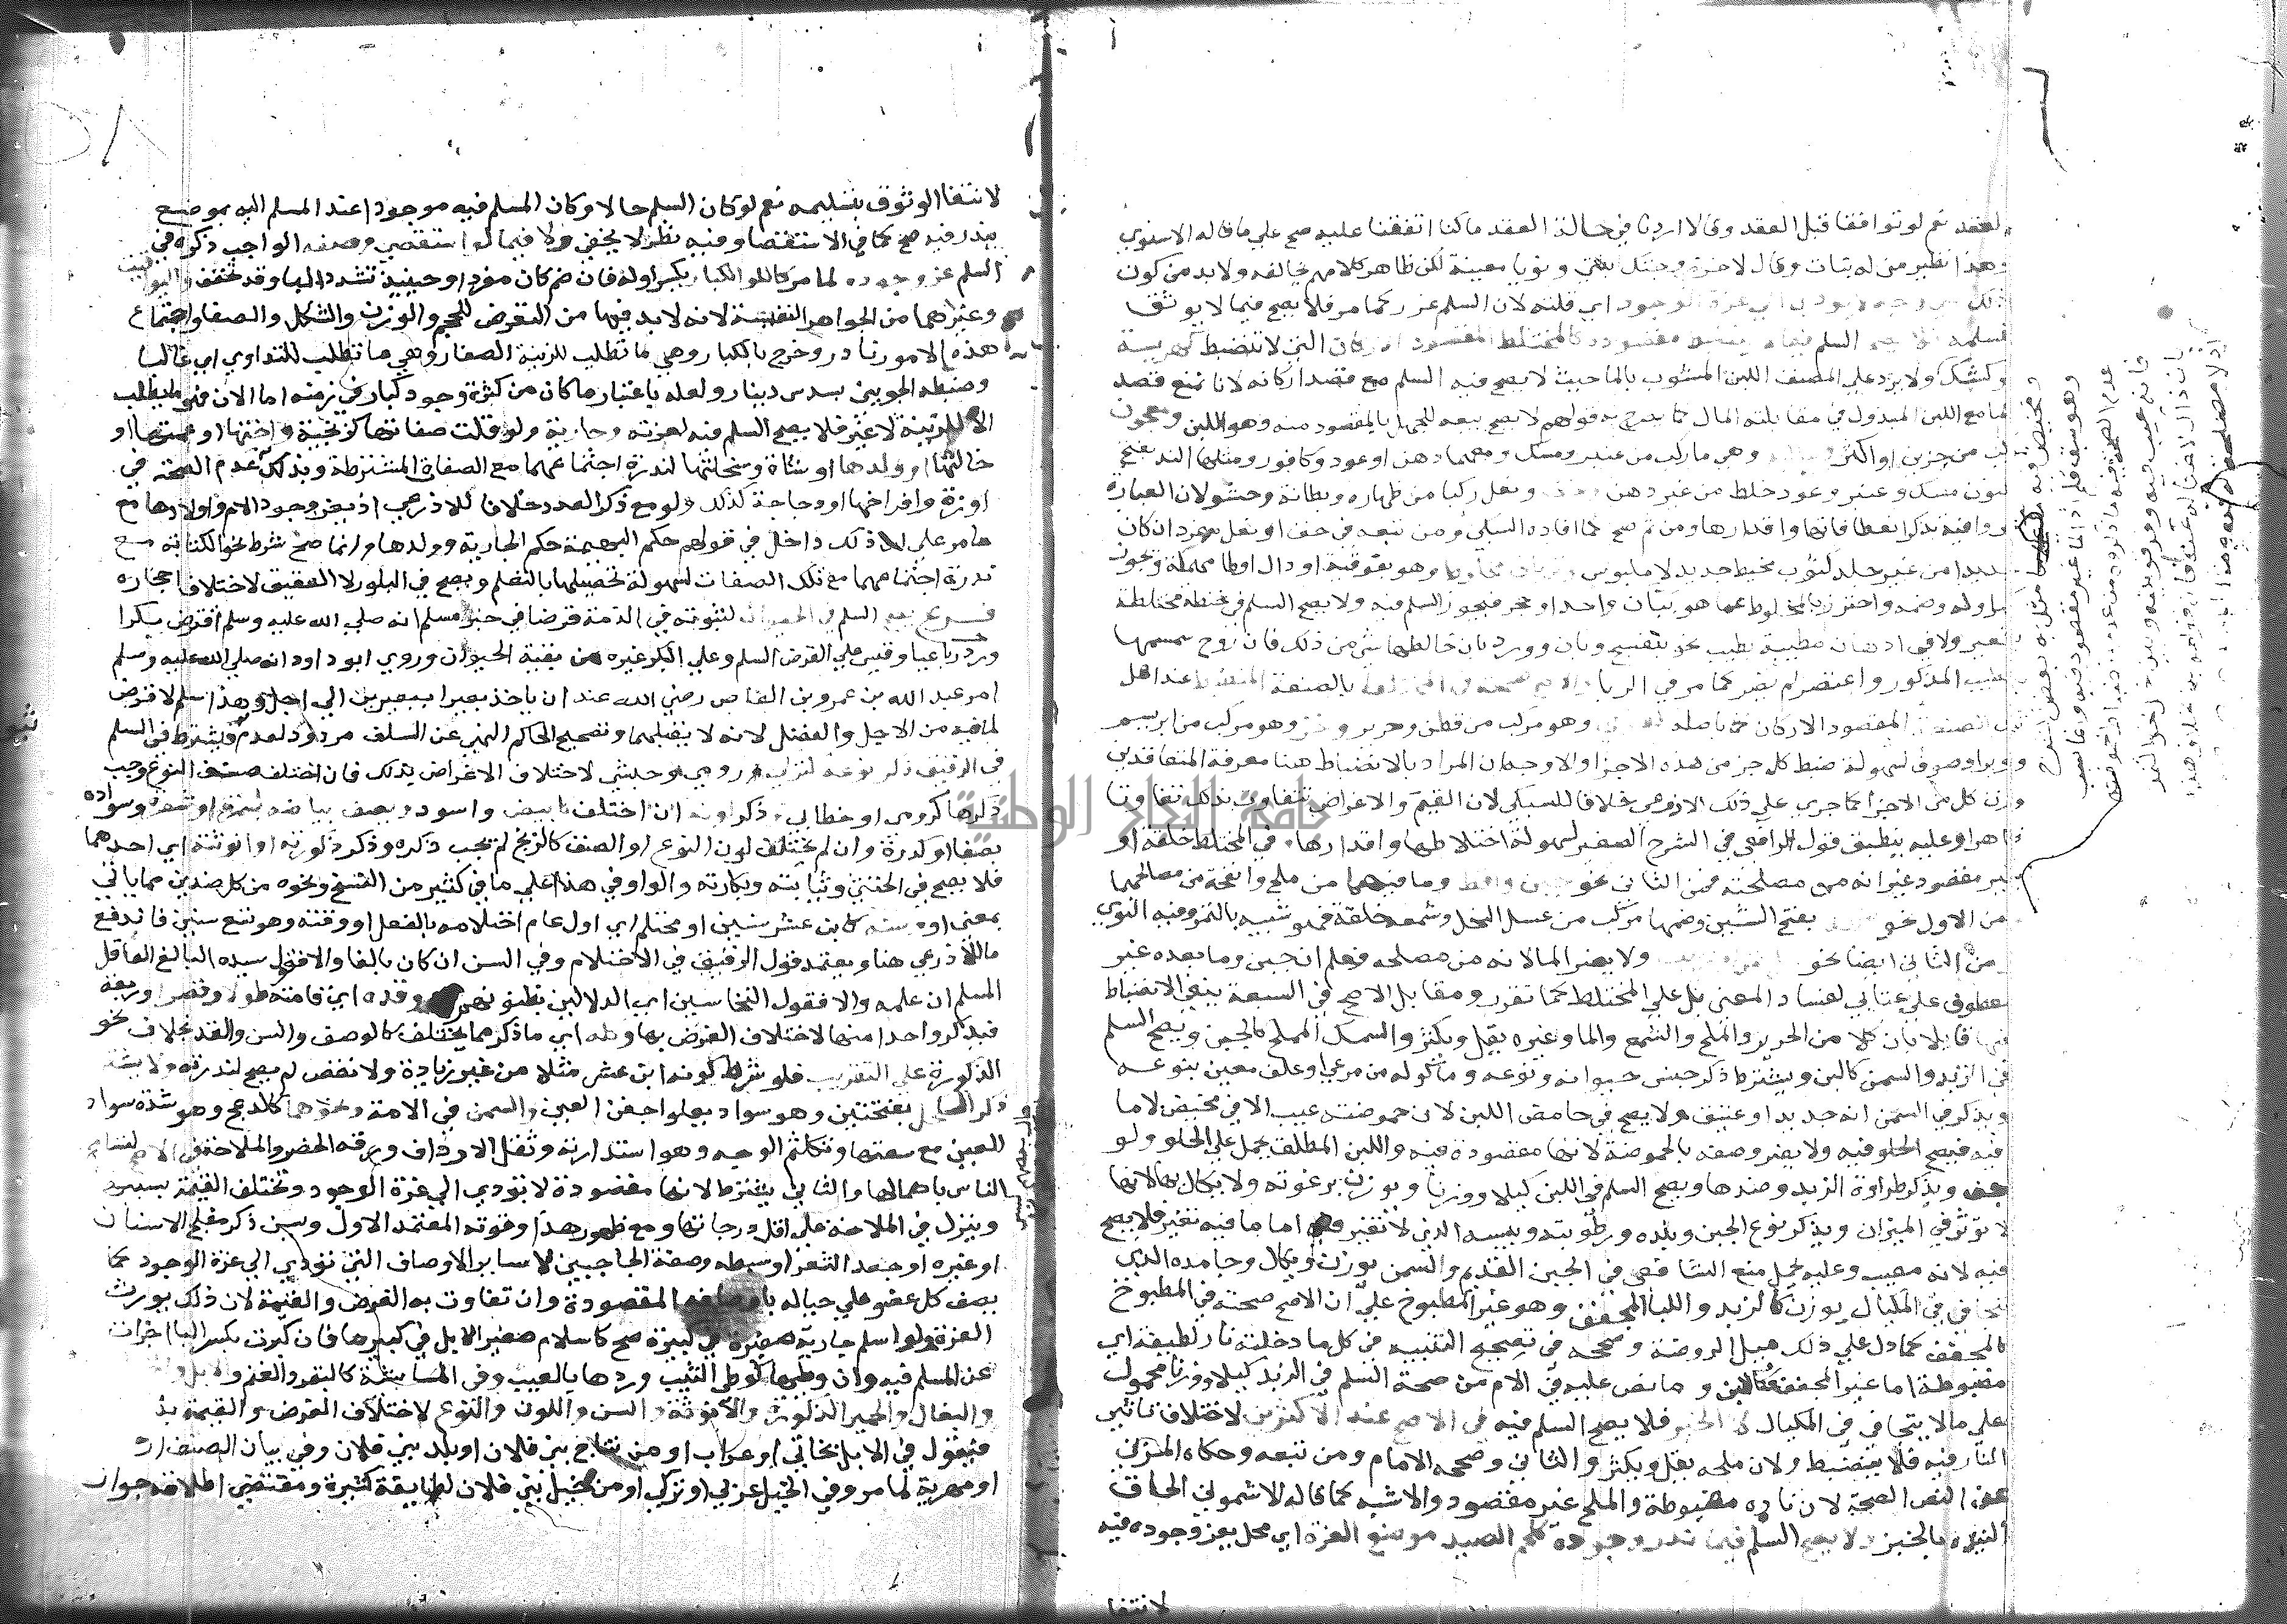 العقد نعم لو توافقا قبل العقد وقالا اردنا في حالة العقد ما كنا اتفقنا عليه صح علي ما قاله الاسنوي
وهذا نظير من له بنات وقال لاخر زوجتك بنتي ونويا معينة لكن ظاهر كلامهم يخالفه ولا بد من كون
ذلك علي وجه لا يودي الي عزة الوجود اي قلته لان السلم غرر كما مر فلا يصح فيما لا يوثق
بتسليمه فلا يصح السلم فيما لا ينضبط مقصوده كالمختلط المقصود الاركان التي لا تنضبط كهريسة
وكشك ولا يرد علي المصنف اللبن المشوب بالما حيث لا يصح فيه السلم مع قصد اركانه لانا نمنع قصد
الما مع اللبن المبذول في مقابلته المال كما يصرح به قولهم لا يصح بيعه للجهل بالمقصود منه وهو اللبن ومعجون
ركب من جزين او اكثر وغالية وهي ما ركب من عنبر ومسك ومعهما دهن او عود وكافور ومثلها الند بفتح
النون مسك وعنبر وعود خلط من غير دهن وخف ونعل ركبا من ظهارة وبطانة وحشو لان العبارة
لا وافية بذكر انعطافاتها واقدارها ومن ثم صح كما افاده السبكي ومن تبعه في خف او نعل مفرد ان كان
جديدا من غير جلد كثوب مخيط جديد لا ملبوس وترياق مخلوط وهو بفوقية او دال او طا مهملة ويجوز
كسر اوله وضمه واحترز بالمخلوط عما هو نبات واحد او حجر فيجوز السلم فيه ولا يصح السلم في حنطة مختلطة
بشعير ولا في ادهان مطيبة بطيب نحو بنفسج وبان وورد بان خالطها شي من ذلك فان روح سمسمها
بالطيب المذكور واعتصر لم يضر كما مر في الربا والاصح صحته في المختلط بالصنعة المنضبط عند اهل
تلك الصنعة المقصود الاركان كما باصله كعتابي وهو مركب من قطن وحرير وخز وهو مركب من ابريسم
ووبر او صوف لسهولة ضبط كل جز من هذه الاجزا والاوجه ان المراد بالانضباط هنا معرفة المتعاقدين
وزن كل من الاجزا كما جري علي ذلك الاذرعي خلافا للسبكي لان القيم والاغراض تتفاوت بذلك تفاوتا
ظاهرا وعليه ينطبق قول الرافعي في الشرح الصغير لسهولة اختلاطها واقدارها وفي المختلط خلقة او
بغير مقصود غير انه من مصلحته فمن الثاني نحو جبن واقط وما فيهما من ملح وانفحة من مصالحهما
ومن الاول نحو شهد بفتح الشين وضمها مركب من عسل النحل وشمعه خلقة فهو شبيه بالتمر وفيه النوي
ومن الثاني ايضا نحو خل تمر وزبيب ولا يضر الما لانه من مصلحه فعلم ان جبن وما بعده غير
معطوف علي عتابي لفساد المعني بل علي المختلط كما تقرر ومقابل الاصح في السبعة ينفي الانضباط
فيها قايلا بان كلا من الحرير والملح والشمع والما وغيره يقل ويكثر والسمك المملح كالجبن ويصح السلم
في الزبد والسمن كاللبن ويشترط ذكر جنس حيوانه ونوعه وماكوله من مرعي او علف معين بنوعه
ويذكر في السمن انه جديد او عتيق ولا يصح في حامض اللبن لان حموضته عيب الا في مخيض لا ما
فيه فيصح الحلو فيه ولا يضر وصفه بالحموضة لانها مقصودة فيه واللبن المطلق يحمل علي الحلو ولو
جف ويذكر طراوة الزبد وضدها ويصح السلم في اللبن كيلا ووزنا ويوزن برغوته ولا يكال بها لانها
لا توثر في الميزان ويذكر نوع الجبن وبلده ورطوبته ويبسه الذي لا تغير فيه اما ما فيه تغير فلا يصح
فيه لانه معيب وعليه يحمل منع الشافعي في الجبن القديم والسمن يوزن ويكال وجامده الذي
يتجافي في المكيال يوزن كالزبد واللبا المجفف وهو غير المطبوخ علي ان الاصح صحته في المطبوخ
كالمجفف كما دل علي ذلك ميل الروضة وصححه في تصحيح التنبيه في كل ما دخلته نار لطيفة اي
مضبوطة اما غير المجفف فكاللبن وما نص عليه في الام من صحة السلم في الزبد كيلا ووزنا محمول
علي ما لا يتجافي في المكيال لا الخبز فلا يصح السلم فيه في الاصح عند الاكثرين لاختلاف تاثير
النار فيه فلا ينضبط ولان ملحه يقل ويكثر والثاني وصححه الامام ومن تبعه وحكاه المزني
عن النص الصحة لان ناره مضبوطة والملح غير مقصود والاشبه كما قاله الاشموني الحاق
النيده بالخبز ولا يصح السلم فيما ندر وجوده كلحم الصيد موضع العزة اي محل يعز وجوده فيه
لانتفا
لانتفا الوثوق بتسليمه نعم لو كان السلم حالا وكان المسلم فيه موجودا عند المسلم اليه بموضع
يندر فيه صح كما في الاستقصا وفيه نظر لا يخفي ولا فيما لو استقصي وصفه الواجب ذكره في
السلم عز وجوده لما مر كاللولو الكبار بكسر اوله فان ضم كان مفردا وحينئذ تشدد البا وقد تخفف واليواقيت
وغيرهما من الجواهر النفيسة لانه لا بد فيها من التعرض للحجم والوزن والشكل والصفا واجتماع
هذه الامور نادر وخرج بالكبار وهي ما تطلب للزينة الصغار وهي ما تطلب للتداوي اي غالبا
وضبطه الجويني بسدس دينار ولعله باعتبار ما كان من كثرة وجود كبار في زمنه اما الان فهو لا يطلب
الا للزينة لا غير فلا يصح السلم فيه لعزته وجارية ولو قلت صفاتها كزنجية واختها او عمتها او
خالتها او ولدها او شاة وسخلتها لندرة اجتماعهما مع الصفات المشترطة وبذلك عدم الصحة في
اوزة وافراخها او دجاجة كذلك ولو مع ذكر العدد خلافا للاذرعي اذ يعز وجود الام واولادها مع
ما مر علي ان ذلك داخل في قولهم حكم البهيمة حكم الجارية وولدها وانما صح شرط نحو الكتابة مع
ندرة اجتماعهما مع تلك الصفات لسهولة تحصيلها بالتعلم ويصح في البلور لا العقيق لاختلاف احجاره
فرع يصح السلم في الحيوان لثبوته في الذمة قرضا في خبر مسلم انه صلي الله عليه وسلم اقترض بكرا
ورد رباعيا وقيس علي القرض السلم وعلي البكر غيره من بقية الحيوان وروي ابو داود انه صلي الله عليه وسلم
امر عبد الله بن عمرو بن العاص رضي الله عنه ان ياخذ بعيرا ببعيرين الي اجل وهذا سلم لا قرض
لما فيه من الاجل والفضل لانه لا يقبلهما وتصحيح الحاكم النهي عن السلف مردود فيشترط في السلم
في الرقيق ذكر نوعه كتركي ورومي وحبشي لاختلاف الاغراض بذلك فان اختلف صنف النوع وجب
ذكرها كرومي او خطابي وذكر لونه ان اختلف كابيض واسود ويصف بياضه بسمرة او شقرة وسواده
بصفا او كدرة وان لم يختلف لون النوع او الصنف كالزنج لم يجب ذكره وذكر ذكورته او انوثته اي احدهما
فلا يصح في الخنثي وثيابته وبكارته والواو في هذا علي ما في كثير من النسخ ونحوه من كل ضدين مما ياتي
بمعني او وسنه كابن عشر سنين او محتلم اي اول عام احتلامه بالفعل او وقته وهو تسع سنين فاندفع
ما للاذرعي هنا ويعتمد قول الرقيق في الاحتلام وفي السن ان كان بالغا والا فقول سيده البالغ العاقل
المسلم ان علمه والا فقول النخاسين اي الدلالين بظنونهم وقده اي قامته طولا وقصرا وربعة
فيذكر واحدا منها لاختلاف الغرض بها وكله اي ما ذكر مما يختلف كالوصف والسن والقد بخلاف نحو
الذكورة علي التقريب فلو شرط كونه ابن عشر مثلا من غير زيادة ولا نقص لم يصح لندرته ولا يشترط
ذكر الكحل بفتحتين وهو سواد يعلو جفن العين والسمن في الامة ونحوهما كالدعج وهو شدة سواد
العين مع سعتها وتكلثم الوجه وهو استدارته وثقل الارداف ورقة الخصر والملاحة في الاصح لتسامح
الناس باهمالها والثاني يشترط لانها مقصودة لا تؤدي الي عزة الوجود وتختلف القيمة بسببه
وينزل في الملاحة علي اقل درجاتها ومع ظهور هذا وقوته المعتمد الاول وسن ذكر مفلج الاسنان
او غيره او جعد الشعر او سبطه وصفة الحاجبين لا ساير الاوصاف التي تؤدي الي عزة الوجود كما
يصف كل عضو علي حياله باوصافه المقصودة وان تفاوت به الغرض والقيمة لان ذلك يورث
العزة ولو اسلم جارية صغيرة في كبيرة صح كاسلام صغير الابل في كبيرها فان كبرت بكسر البا اجزات
عن المسلم فيه وان وطيها كوطي الثيب وردها بالعيب وفي الماشية كالبقر والغنم والابل و
والبغال والحمير الذكورة والانوثة والسن واللون والنوع لاختلاف الغرض والقيمة بذ
فيقول في الابل بخاتي او عراب او من نتاج بني فلان او بلد بني فلان وفي بيان الصنف ار
او مهرية لما مر وفي الخيل عربي او تركي او من خيل بني فلان لطايفة كثيرة ومقتضي اطلاقه جواز